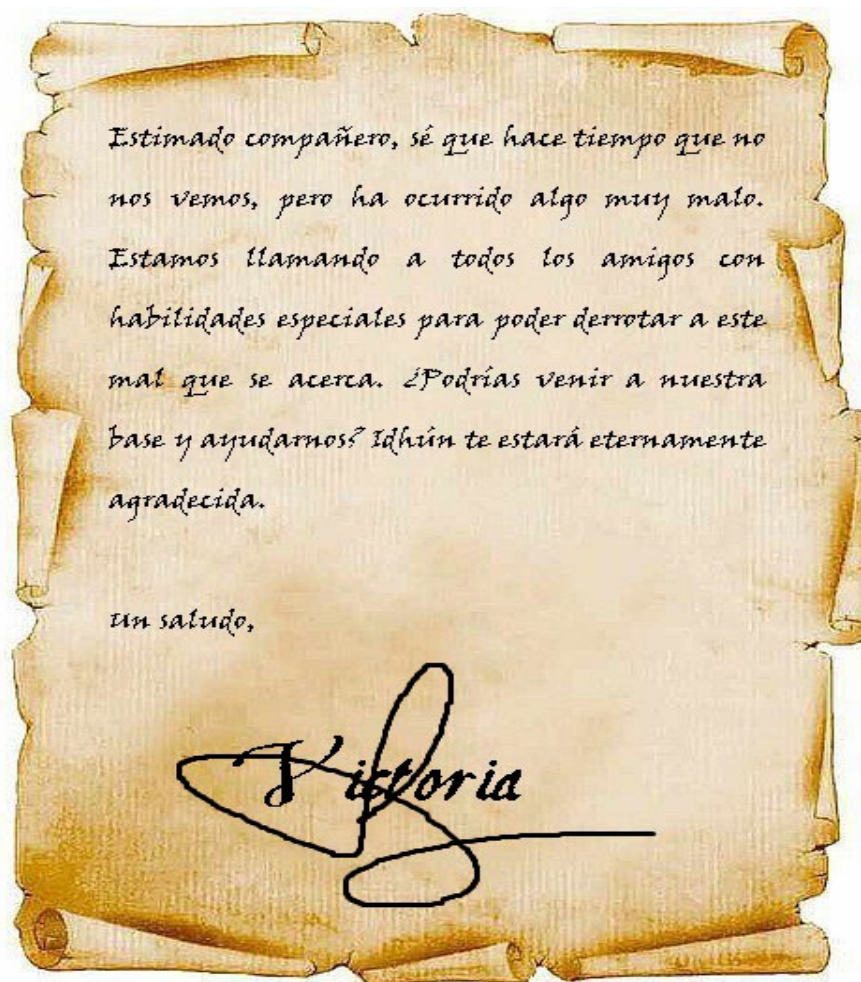 Estimado compañero, sé que hace tiempo que no
nos vemos, pero ha ocurrido algo muy malo.
Estamos llamando a todos los amigos con
habilidades especiales para poder derrotar a este
mal que se acerca. ¿Podrías venir a nuestra
base y ayudarnos? Idhún te estará eternamente
agradecida.
Un saludo,
Victoria